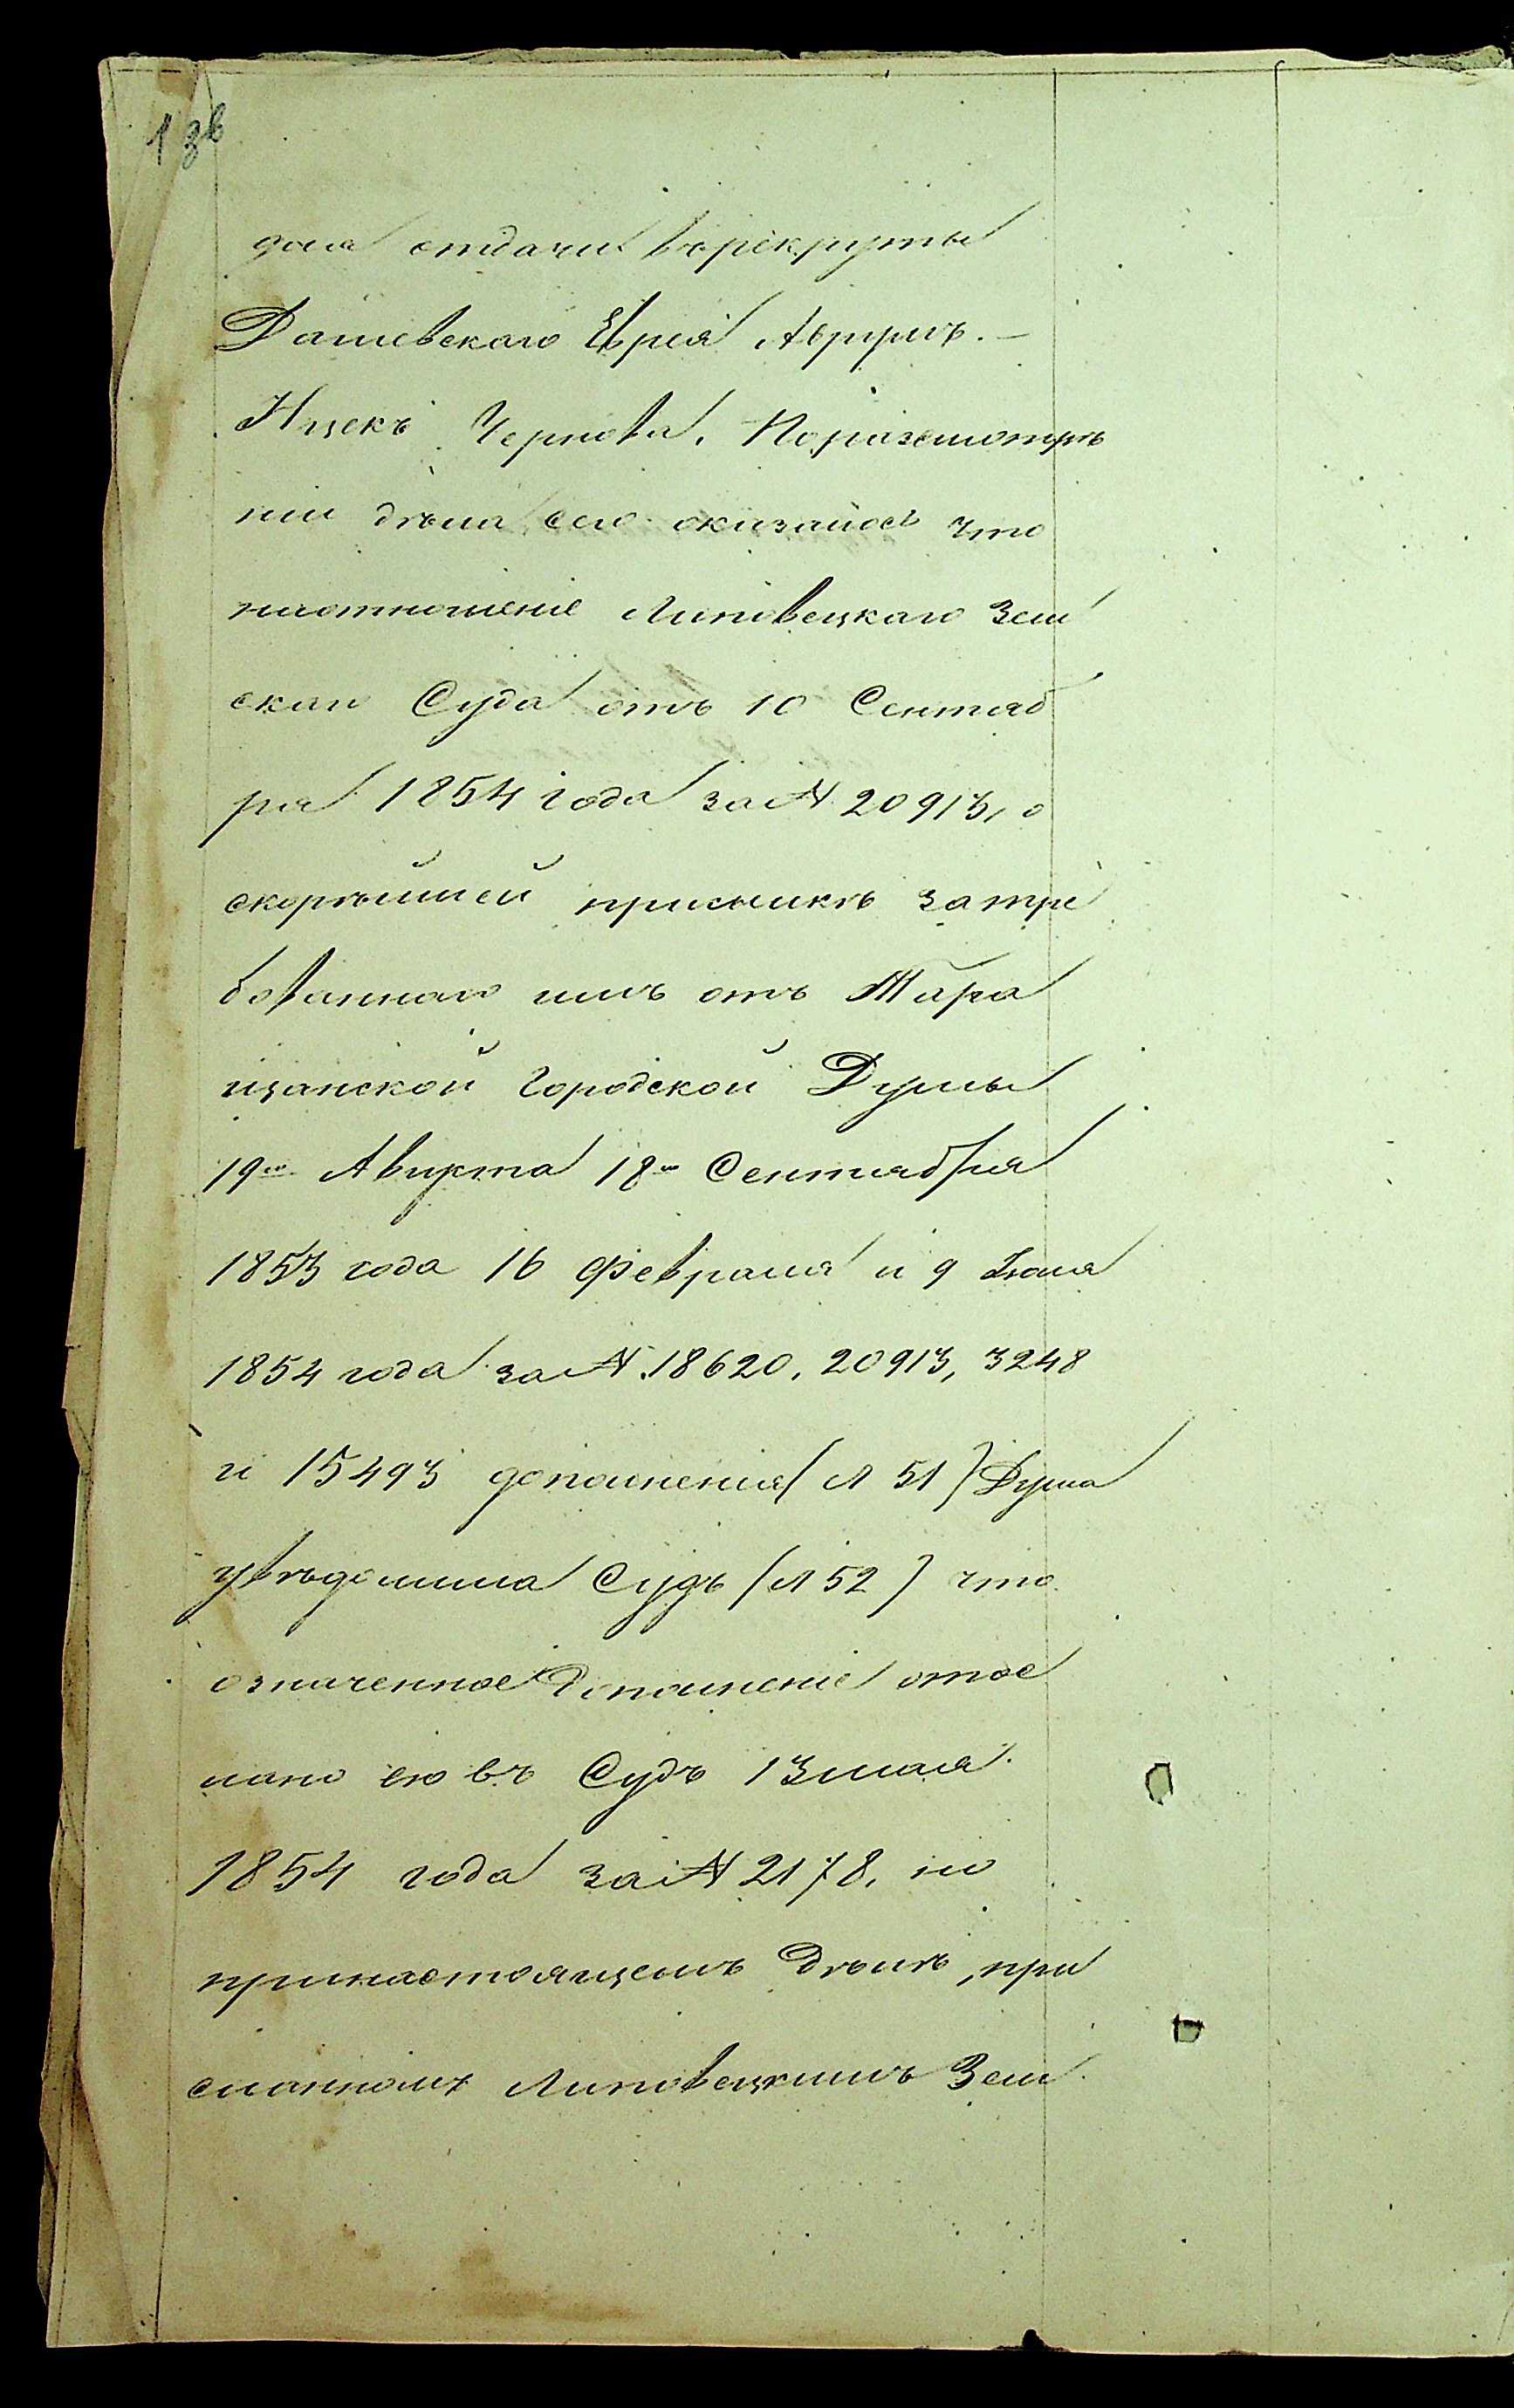 13в
для отдачи въ рекруты
Дашевскаго Еврея Аврумъ.-
Ицекъ Чернова. По разсмотрѣ
нiи дѣла сего оказалось что
на отношенiе Липовецкаго Зем
скаго Суда отъ 10 Сентяб
ря 1854 года за № 20913, о
скорѣйшей присылкѣ затре
бованнаго имъ отъ Тара
щанской Городской Думы
19го Августа 18го Сентября
1853 года 16 Февраля и 9 Iюля
1854 года за № 18620, 20913, 3248
и 15493 дополненiя (л 51) Дума
увѣдомила Судъ (л 52) что
означенное дополненiе отос
лано ею въ Судъ 13 мая
1854 года за № 2178, но
при настоящемъ дѣлѣ, при
сланномъ Липовецкимъ Зем